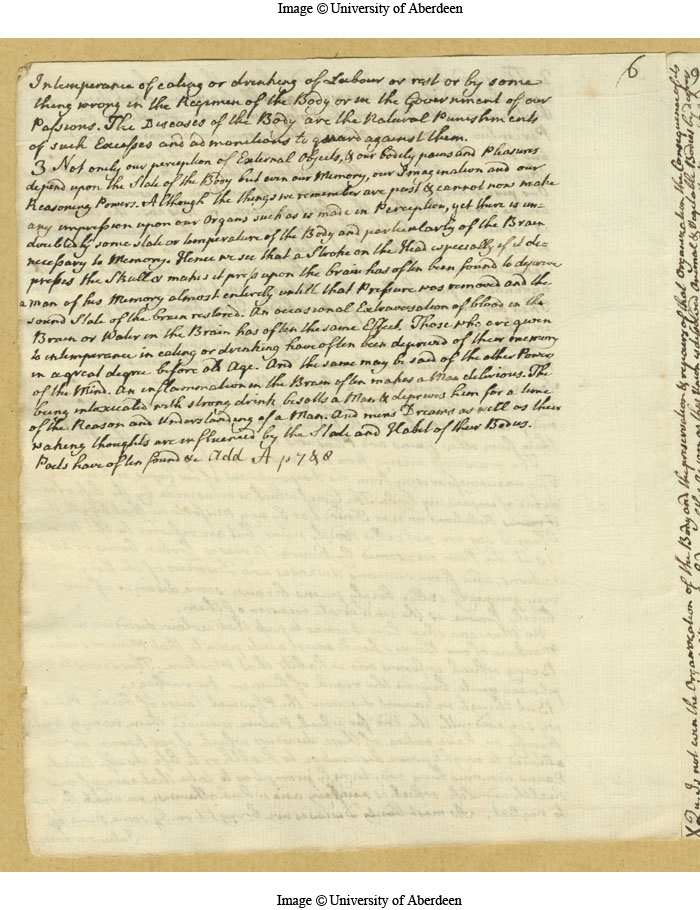 Image © University of Aberdeen
6
Intemperance of eating or drinking of Labour or rest or by some
thing wrong in the Regimen of the Body or in the Government of our
Passions. The Diseases of the Body are the Natural Punishments
of such Excesses and admonitions to guard against them.
3 Not only our perception of External Objects, & our bodily pains and Pleasures
depend upon the State of the Body but even our Memory, our Imagination and our
Reasoning Powers. Although the things we remember are past & cannot now make
any impression upon our Organs such as is made in Perception, yet there is un=
doubtedly some state or temperature of the Body and particularly of the Brain
necessary to Memory. Hence we see that a Stroke on the Head especially if it de=
presses the Skull & makes it press upon the brain has often been found to deprive
a man of his Memory almost entirely untill that Pressure was removed and the
sound State of the brain restored. An occasional Extravasation of blood in the
Brain or Water in the Brain has often the same Effect. Those who are given
to intemperance in eating or drinking have often been deprived of their memory
in a great degree before old Age. And the same may be said of the other Powers
of the Mind. An inflammation in the Brain often makes a Man delirious. The
being intoxicated with strong drink besotts a Man & deprives him for a time
of the Reason and Understanding of a Man. And mens Dreams as well as their
waking thoughts are influenced by the State and Habit of their Bodies.
Poets have often found &c Add A p 7 & 8
X Qu. Is not even the Organization of the Body and the preservation & repairing of that Organization the Consequence of its
Image © University of Aberdeen